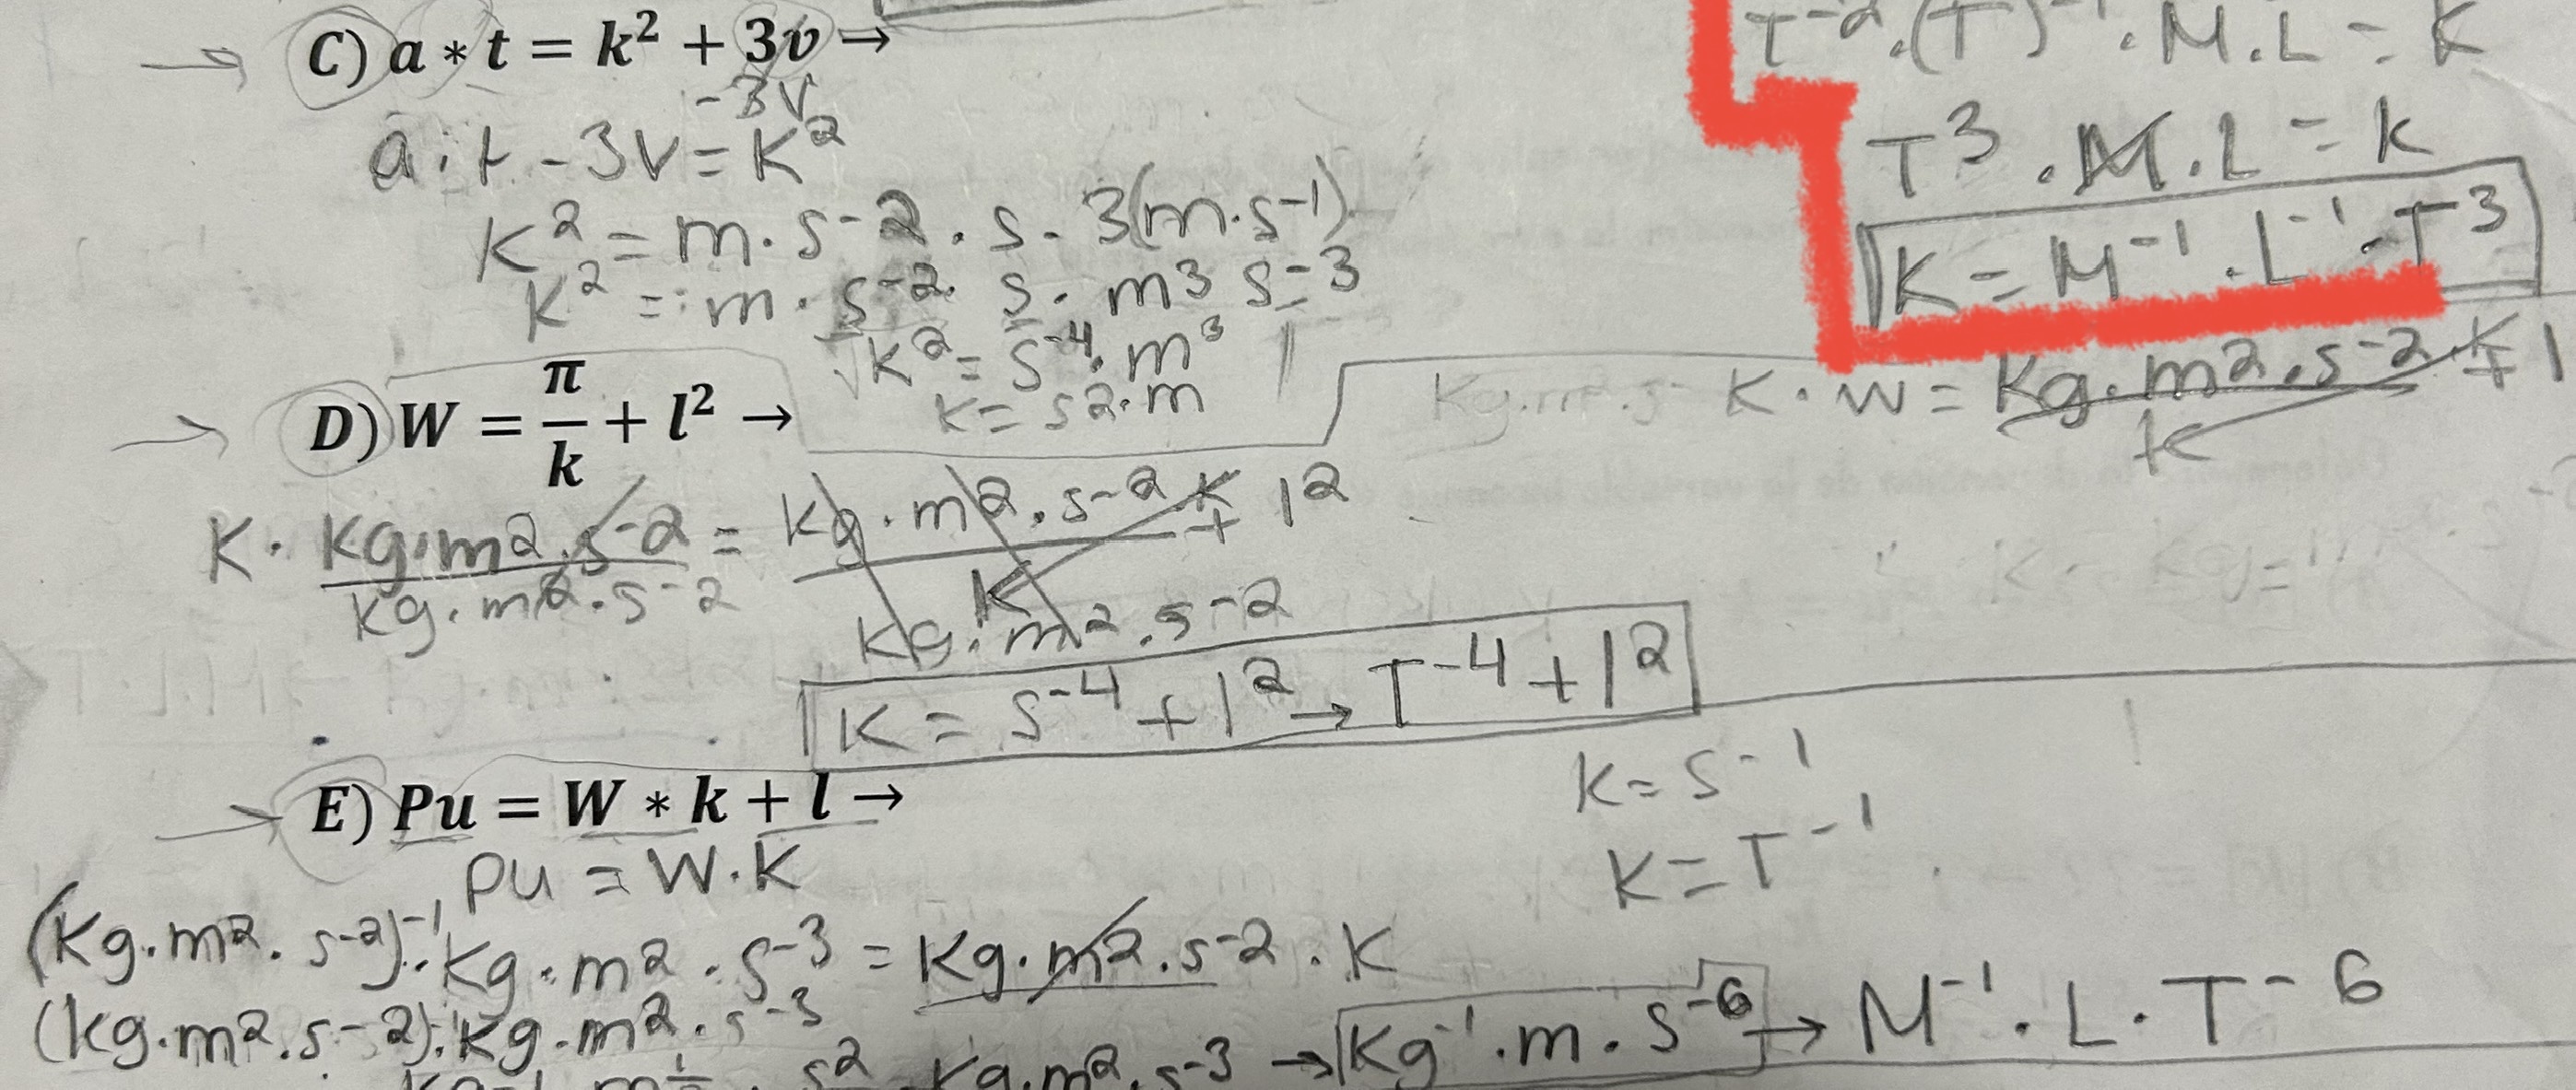 C) a * t = k² + 3v →
-3V
a · t - 3V = K²
K² = m · s-2 · s - 3(m·s-1)
K² = m · s-2 · s · m3 s-3
√K² = s-4 · m³
K = s2·m
T-2.(T)-1 . M.L = K
T3 . M.L = K
K = M-1 . L-1 . T3
D) W = π/k + l² →
K · W = Kg·m2·s-2·K
K
K · Kg·m2·s-2 = Kg·m2·s-2·K + l2
Kg·m2·s-2
K
Kg·m2·s-2
K = s-4 + l2 → T-4 + l2
K = s-1
K = T-1
E) Pu = W * k + l →
PU = W·K
(Kg·m2·s-2)-1·Kg·m2·s-3 = Kg·m2·s-2·K
(kg·m2·s-2)-1·Kg·m2·s-3
s2 · Kg·m2·s-3 → Kg-1·m·s-6 → M-1·L·T-6